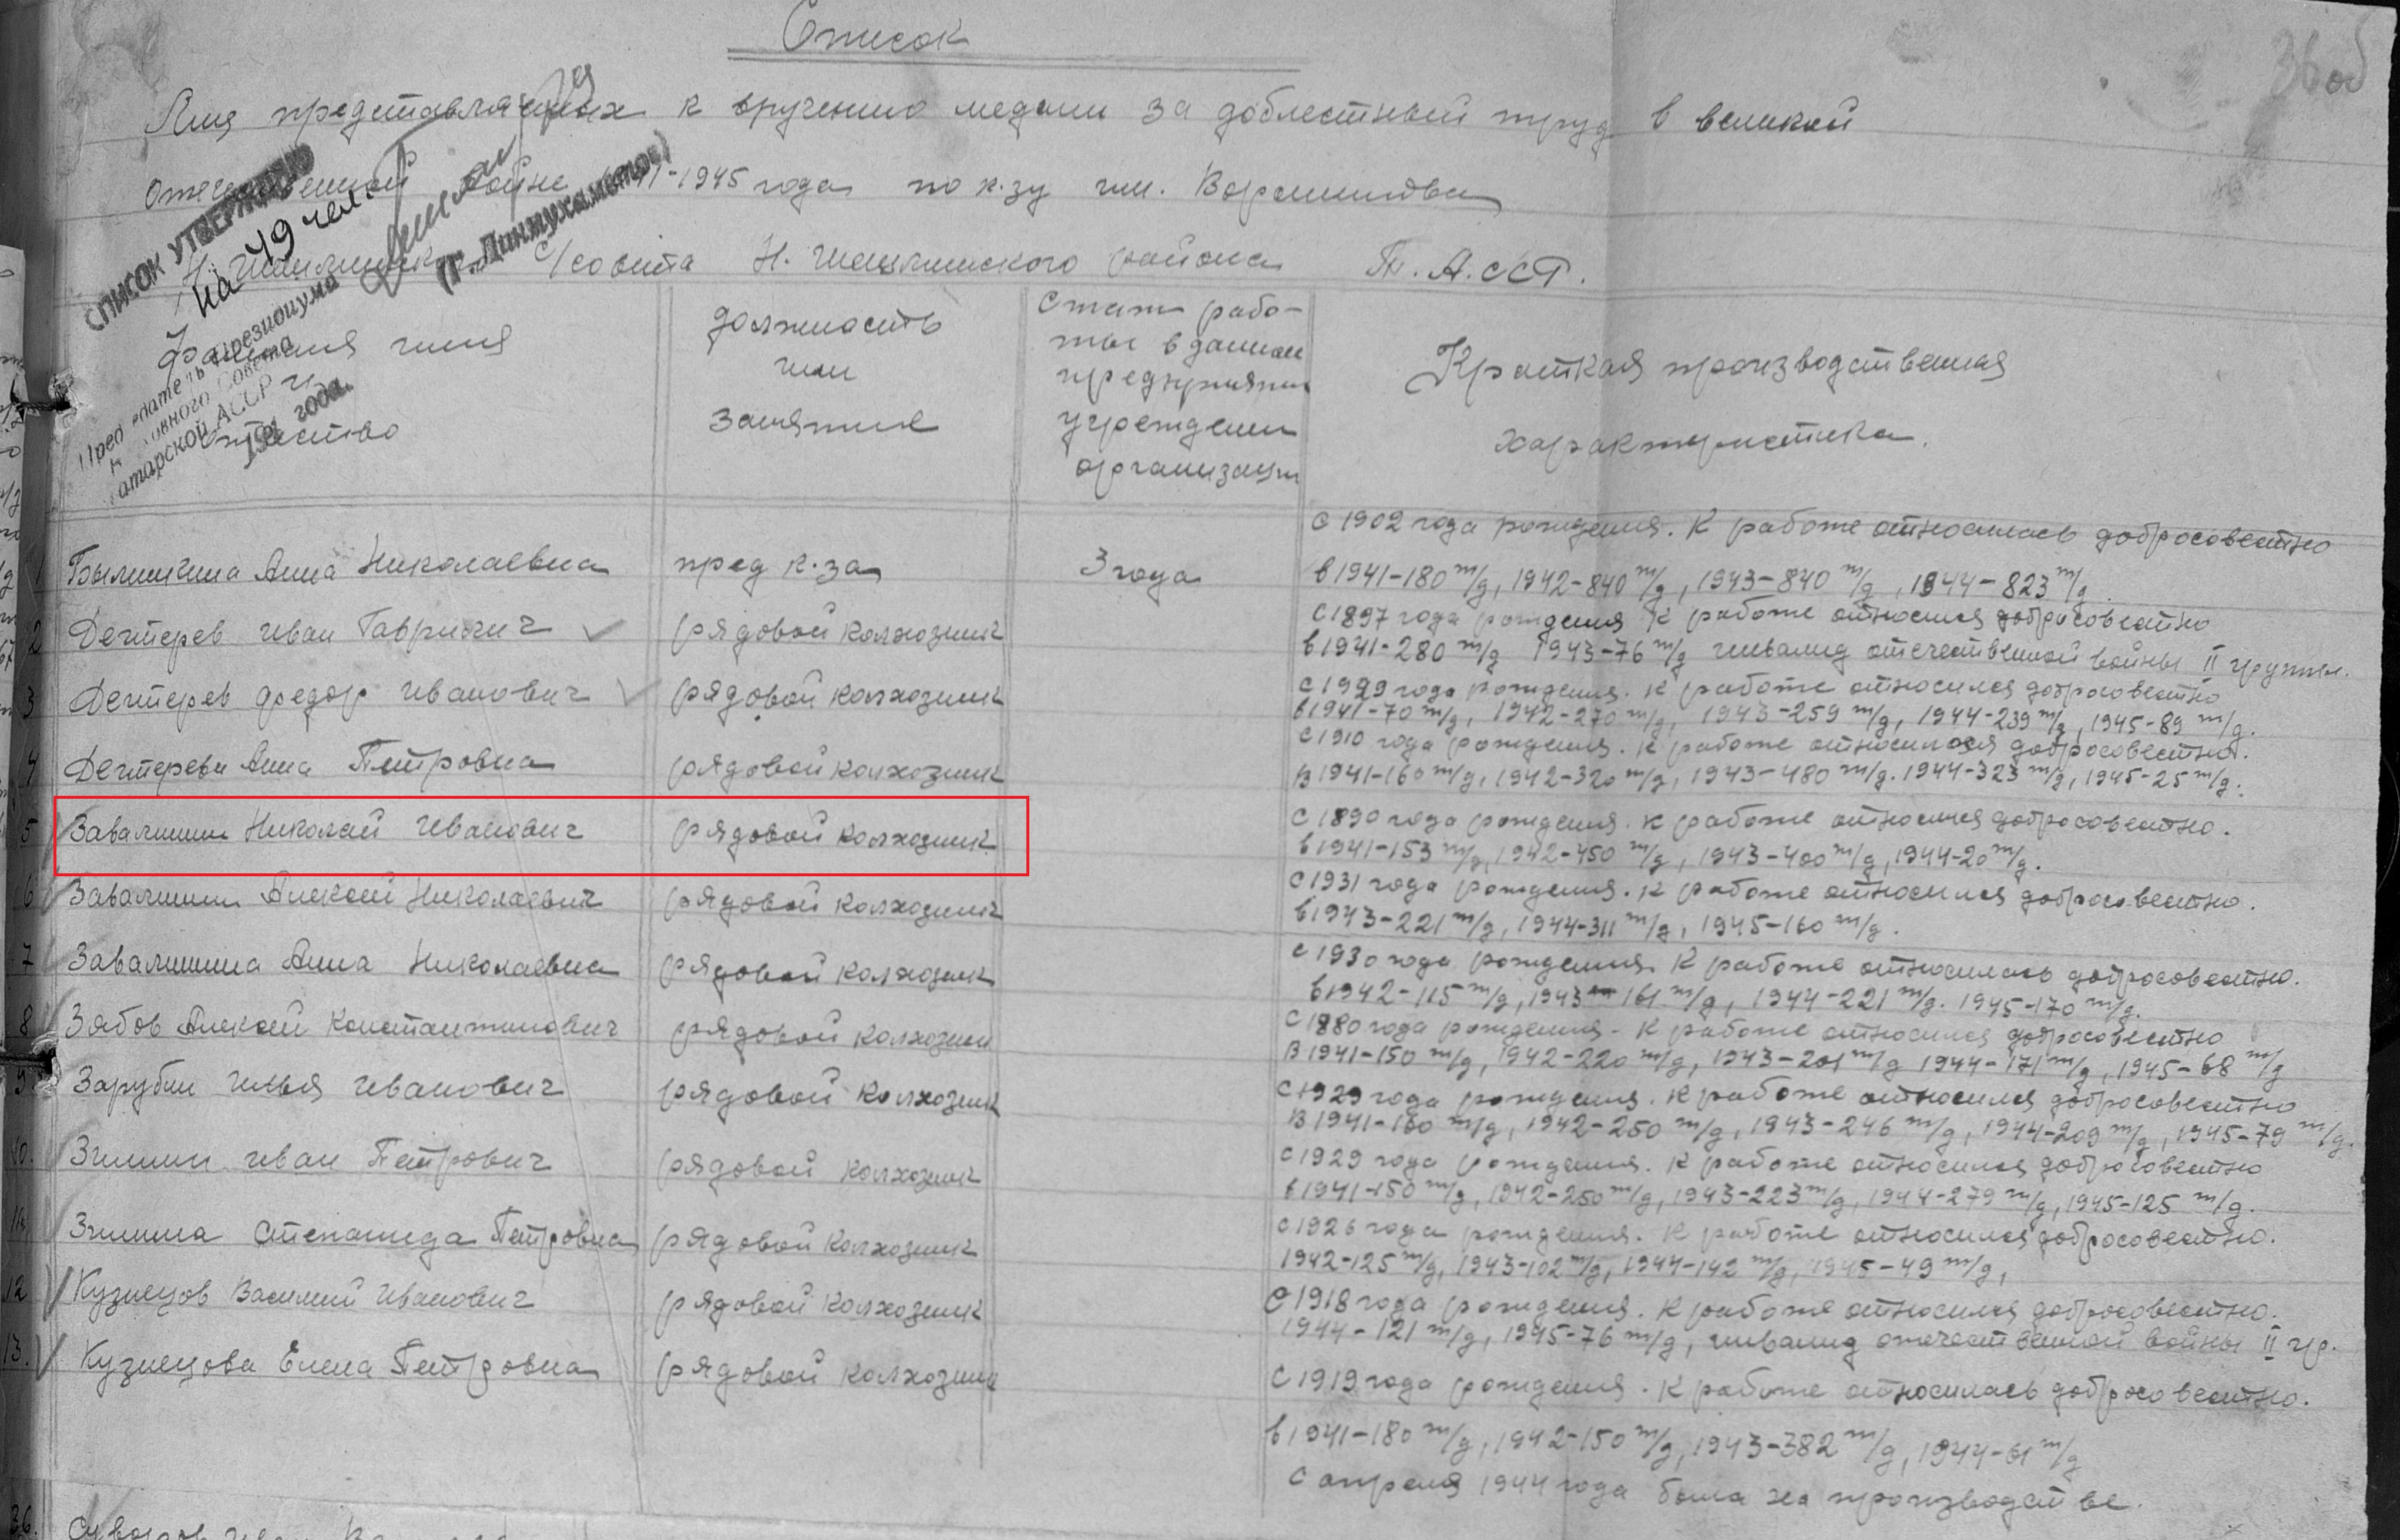 Список
36 об
Лиц представляемых к вручению медали за доблестный труд в великой
Отечественной войне 1941-1945 года по к.зу им. Ворошилова
Н. Шешминского с/совета Н. Шешминского района Т. А. ССР.
СПИСОК УТВЕРЖДАЮ
на 49 чел.
(Г. Динмухаметов)
Председатель Президиума
Верховного Совета
Татарской АССР
194 года.
Фамилия имя и отчество
должность
или
занятие
Стаж рабо-
ты в данном
предприятии
учреждении
организации
Краткая производственная
характеристика.
с 1902 года рождения. К работе относилась добросовестно
1 Былинкина Анна Николаевна пред к-за 3 года в 1941-180 т/д, 1942-840 т/д, 1943-840 т/д, 1944-823 т/д.
с 1897 года рождения К работе относился добросовестно
2 Дегтерев Иван Гаврилич рядовой колхозник в 1941-280 т/д 1943-76 т/д инвалид отечественной войны II группы.
с 1929 года рождения. К работе относился добросовестно
3 Дегтерев Федор Иванович рядовой колхозник в 1941-70 т/д, 1942-270 т/д, 1943-259 т/д, 1944-239 т/д, 1945-89 т/д.
с 1910 года рождения. К работе относилася добросовестно.
4 Дегтерева Анна Петровна рядовой колхозник В 1941-160 т/д, 1942-320 т/д, 1943-480 т/д. 1944-323 т/д, 1945-25 т/д.
с 1890 года рождения. К работе относился добросовестно.
5 Завалишин Николай Иванович рядовой колхозник в 1941-153 т/д, 1942-450 т/д, 1943-400 т/д, 1944-20 т/д.
с 1931 года рождения. К работе относился добросовестно.
6 Завалишин Алексей Николаевич рядовой колхозник в 1943-221 т/д, 1944-311 т/д, 1945-160 т/д.
с 1930 года рождения К работе относилась добросовестно.
7 Завалишина Анна Николаевна рядовой колхозник в 1942-115 т/д, 1943-161 т/д, 1944-221 т/д. 1945-170 т/д.
с 1880 года рождения - К работе относился добросовестно
8 Зябов Алексей Константинович рядовой колхозник В 1941-150 т/д, 1942-220 т/д, 1943-201 т/д 1944-171 т/д, 1945-68 т/д
с 1929 года рождения. К работе относился добросовестно
9 Зарубин Илья Иванович рядовой колхозник В 1941-160 т/д, 1942-250 т/д, 1943-246 т/д, 1944-209 т/д, 1945-79 т/д.
с 1929 года рождения. К работе относился добросовестно
10. Зимин Иван Петрович рядовой колхозник в 1941-150 т/д, 1942-250 т/д, 1943-223 т/д, 1944-279 т/д, 1945-125 т/д.
с 1926 года рождения. К работе относился добросовестно.
11 Зимина Степанида Петровна рядовой колхозник 1942-125 т/д, 1943-102 т/д, 1944-142 т/д, 1945-49 т/д,
с 1918 года рождения. К работе относился добросовестно.
12 Кузнецов Василий Иванович рядовой колхозник 1944-121 т/д, 1945-76 т/д, инвалид отечественной войны II гр.
13. Кузнецова Елена Петровна рядовой колхозник с 1919 года рождения. К работе относилась добросовестно.
в 1941-180 т/д, 1942-150 т/д, 1943-382 т/д, 1944-61 т/д
С апреля 1944 года была на производстве.
26.